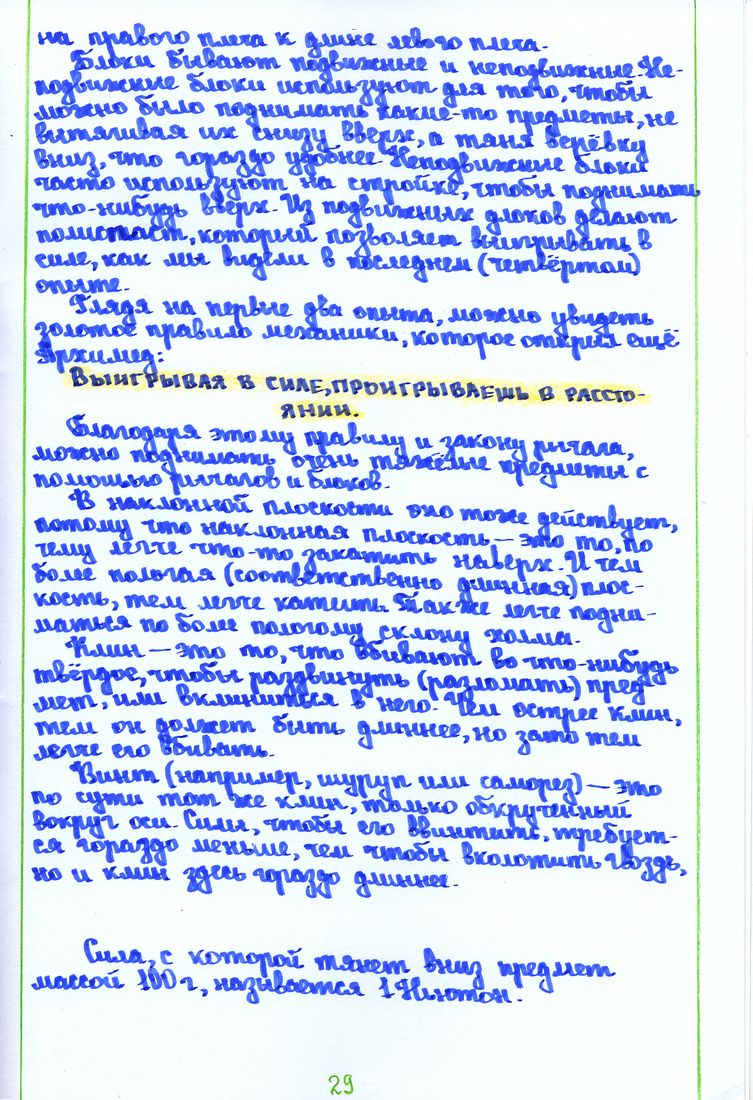 на правого плеча к длине левого плеча.
Блоки бывают подвижные и неподвижные. Не-
подвижные блоки используют для того, чтобы
можно было поднимать какие-то предметы, не
вытягивая их снизу вверх, а тяня верёвку
вниз, что гораздо удобнее. Неподвижные блоки
часто используют на стройке, чтобы поднимать
что-нибудь вверх. Из подвижных блоков делают
полиспаст, который позволяет выигрывать в
силе, как мы видели в последнем (четвёртом)
опыте.
Глядя на первые два опыта, можно увидеть
золотое правило механики, которое открыл ещё
Архимед:
Выигрывая в силе, проигрываешь в рассто-
янии.
Благодаря этому правилу и закону рычага,
можно поднимать очень тяжёлые предметы с
помощью рычагов и блоков.
В наклонной плоскости оно тоже действует,
потому что наклонная плоскость — это то, по
чему легче что-то закатить наверх. И чем
более пологая (соответственно длинная) плос-
кость, тем легче катить. Также легче подни-
маться по более пологому склону холма.
Клин — это то, что вбивают во что-нибудь
твёрдое, чтобы раздвинуть (разломать) пред-
мет, или вклиниться в него. Чем острее клин,
тем он должет быть длиннее, но зато тем
легче его вбивать.
Винт (например, шуруп или саморез) — это
по сути тот же клин, только обкрученный
вокруг оси. Силы, чтобы его ввинтить, требует-
ся гораздо меньше, чем чтобы вколотить гвоздь,
но и клин здесь гораздо длиннее.
Сила, с которой тянет вниз предмет
массой 100 г, называется 1 Ньютон.
29